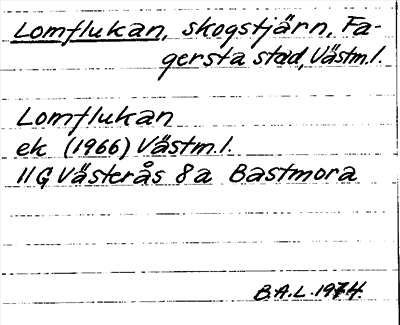 Lomflukan, skogstjärn, Fa-
gersta stad, Västm.l.
Lomflukan
ek (1966) Västm.l.
11G Västerås 8a Bastmora
B.A.L. 1974.